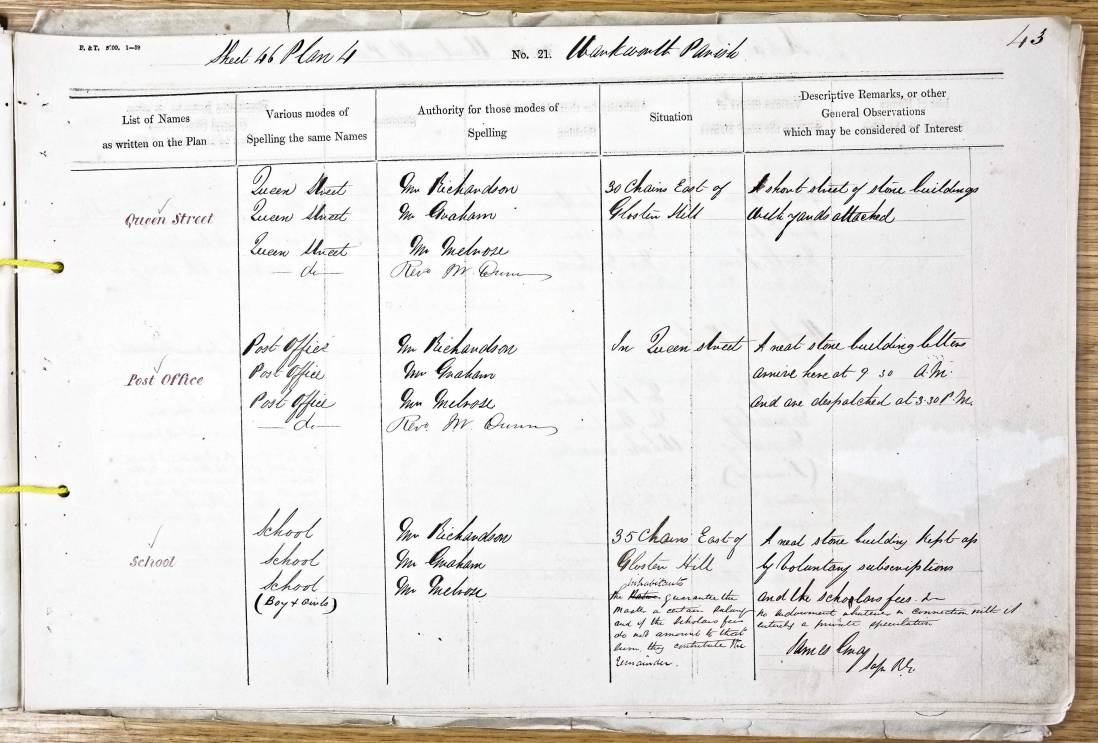 P. & T. 5'00. 1—59
Sheet 46 Plan 4
No. 21.
Warkworth Parish
43
List of Names
as written on the Plan
Various modes of
Spelling the same Names
Authority for those modes of
Spelling
Situation
Descriptive Remarks, or other
General Observations
which may be considered of Interest
Queen Street
Queen Street
Queen Street
Queen Street
— do —
Mr Richardson
Mr Graham
Mr Melrose
Revd. W. Dunn
30 Chains East of
Gloster Hill
A short street of stone buildings
with yards attached
Post Office
Post Office
Post Office
Post Office
— do —
Mr Richardson
Mr Graham
Mr Melrose
Revd. W. Dunn
In Queen street
A neat stone building letters
arrive here at 9 30 A.M.
and are despatched at 3.30 P.M.
School
School
School
School
(Boy & Girls)
Mr Richardson
Mr Graham
Mr Melrose
35 Chains East of
Gloster Hill
inhabitants
the guarantee the
Master a certain Salary
and if the Scholars fees
do not amount to that
sum, they contribute the
remainder.
A neat stone building Kept up
by Voluntary subscriptions
and the scholars fees.
no endowment whatever in connection with it
entirely a private speculation
James Gray
Sapr R.E.